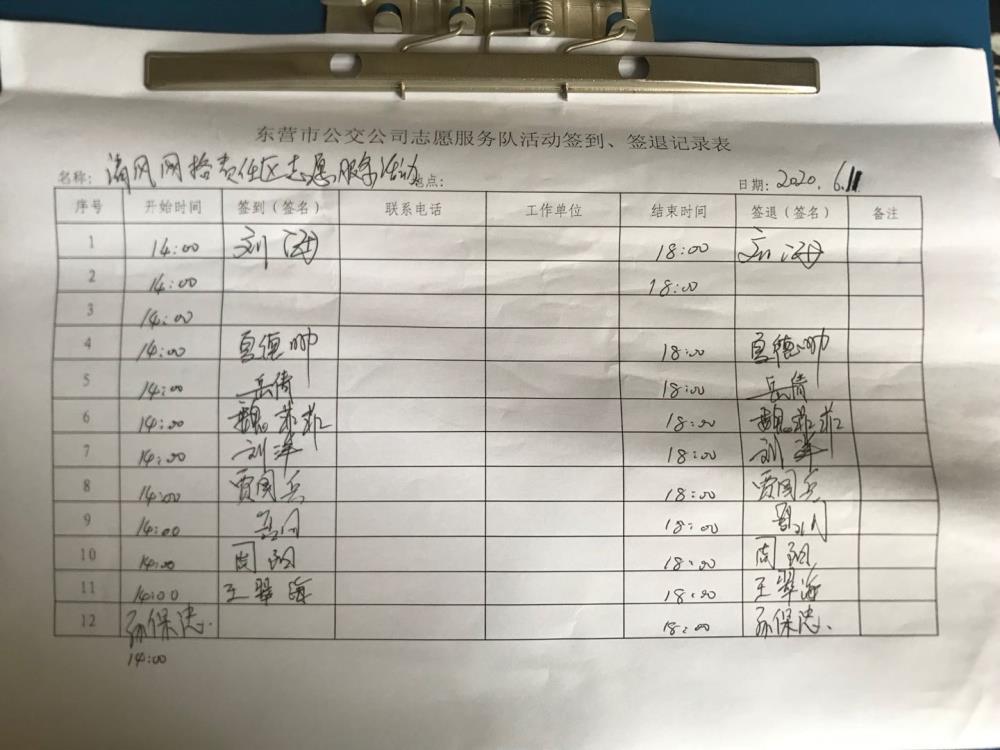 东营市公交公司志愿服务队活动签到、签退记录表
名称：清风网格责任区志愿服务活动 地点： 日期：2020.6.11
序号 开始时间 签到（签名） 联系电话 工作单位 结束时间 签退（签名） 备注
1 14:00 刘海 18:00 刘海
2 14:00 18:00
3 14:00
4 14:00 18:00
5 14:00 岳倩 18:00 岳倩
6 14:00 魏菲菲 18:00 魏菲菲
7 14:00 刘洋 18:00 刘洋
8 14:00 贾国兵 18:00 贾国兵
9 14:00 18:00
10 14:00 周 18:00 周
11 14:00 王翠海 18:00 王翠海
12 孙保忠 18:00 孙保忠
14:00